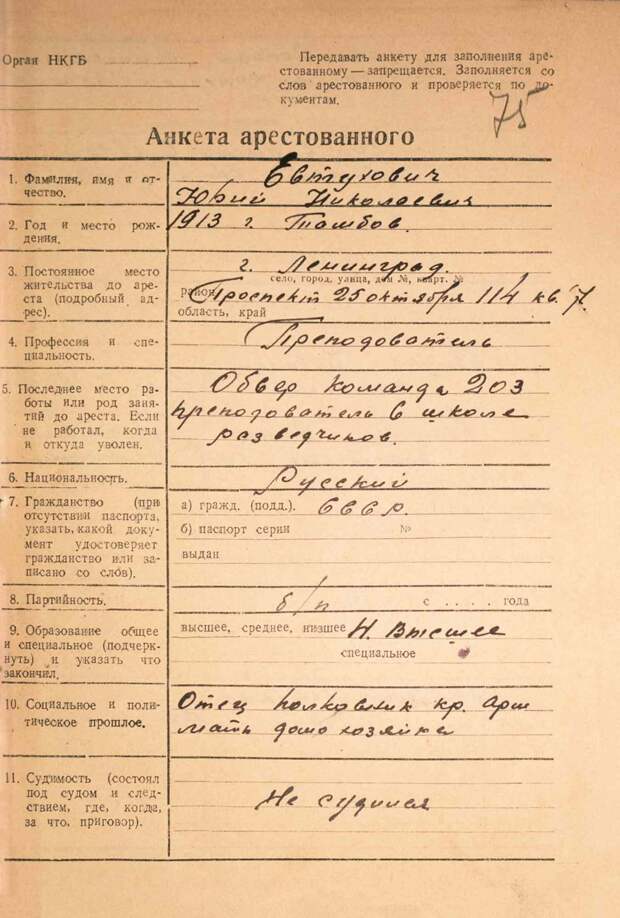 Орган НКГБ
Передавать анкету для заполнения аре-
стованному — запрещается. Заполняется со
слов арестованного и проверяется по до-
кументам.
75
Анкета арестованного
1. Фамилия, имя и от-
чество.
Евтухович
Юрий Николаевич
2. Год и место рож-
дения.
1913 г. Тамбов.
3. Постоянное место
жительства до аре-
ста (подробный ад-
рес).
г. Ленинград.
село, город, улица, дом №, кварт. №
район Проспект 25 октября 114 кв. 7.
область, край
4. Профессия и спе-
циальность.
Преподователь
5. Последнее место ра-
боты или род заня-
тий до ареста. Если
не работал, когда
и откуда уволен.
Абвер команда 203
преподователь в школе
разведчиков.
6. Национальность.
Русский
7. Гражданство (при
отсутствии паспорта,
указать, какой доку-
мент удостоверяет
гражданство или за-
писано со слов).
а) гражд. (подд.). СССР.
б) паспорт серии №
выдан
8. Партийность.
б/п с . . . . года
9. Образование общее
и специальное (подчерк-
нуть) и указать что
закончил.
высшее, среднее, низшее Н. Высшее
специальное
10. Социальное и поли-
тическое прошлое.
Отец полковник кр. арм
мать домохозяйка
11. Судимость (состоял
под судом и след-
ствием, где, когда,
за что, приговор).
Не судился